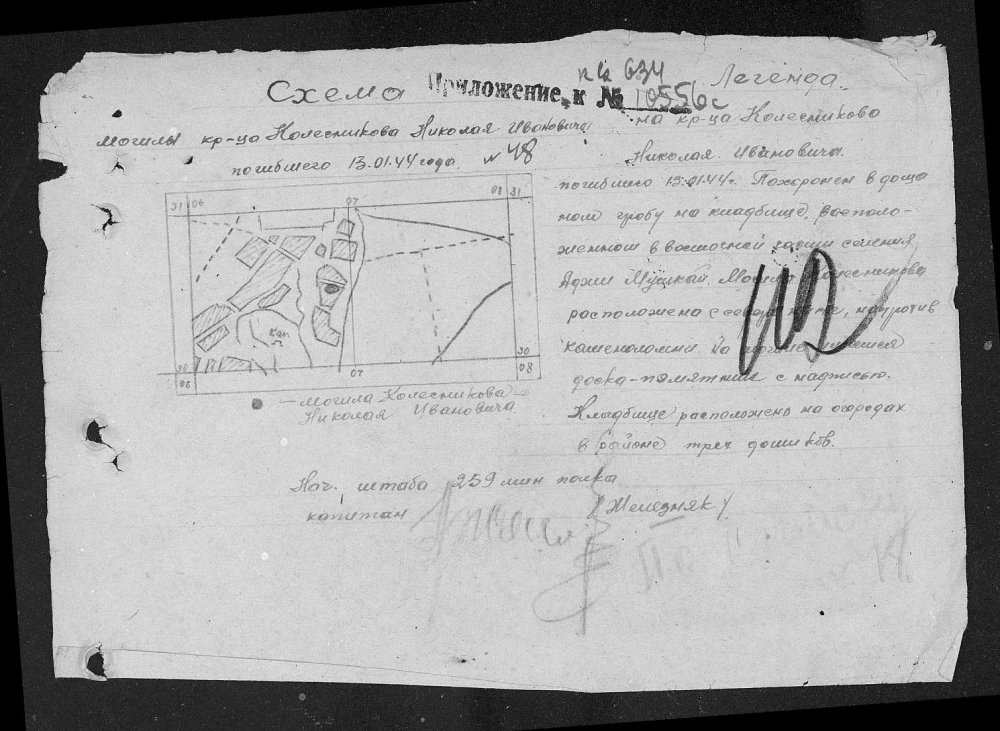 Схема
Приложение к № 10556с
на 634
могилы кр-ца Колесникова Николая Ивановича
погибшего 13.01.44 года. № 48
31 06 07 08 31
Кам.
30 06 07 30 08
— могила Колесникова —
Николая Ивановича
Легенда
на кр-ца Колесникова
Николая Ивановича.
погибшего 13.01.44г. Похоронен в доща
ном гробу на кладбище, располо-
женном в восточной части селения
Аджи Мушкай. Могила Колесникова
расположена с севера, напротив
каменоломни. На могиле имеется
доска-памятник с надписью.
Кладбище расположено на огородах
в районе трех домиков.
Нач. штаба 259 мин полка
капитан /Железняк/